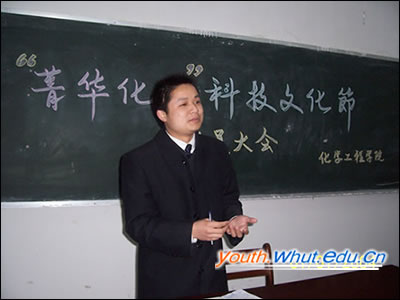 “菁华化”科技文化節
员大会
化学工程学院
youth.Whut.edu.Cn